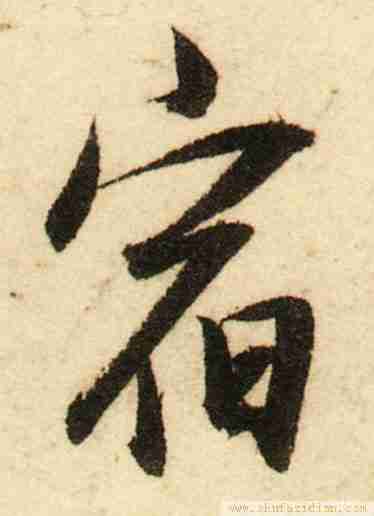 宿
www.shufazidian.com